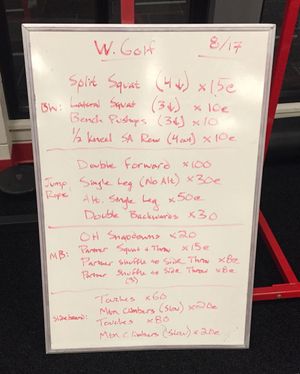 W. Golf 8/17
Split Squat (4↓) x15e
BW: Lateral Squat (3↓) x10e
Bench Pushups (3↓) x10
1/2 Kneel SA Row (4ct) x10e
Double Forward x100
Jump Rope: Single Leg (No Alt) x30e
Alt. Single Leg x50e
Double Backwards x30
OH Slamdowns x20
MB: Partner Squat + Throw x15e
Partner Shuffle to Side Throw x8e
Partner Shuffle to Side Throw x8e
(3)
Touches x60
Slideboard: Mtn Climbers (slow) x20e
Touches x80
Mtn. Climbers (slow) x20e